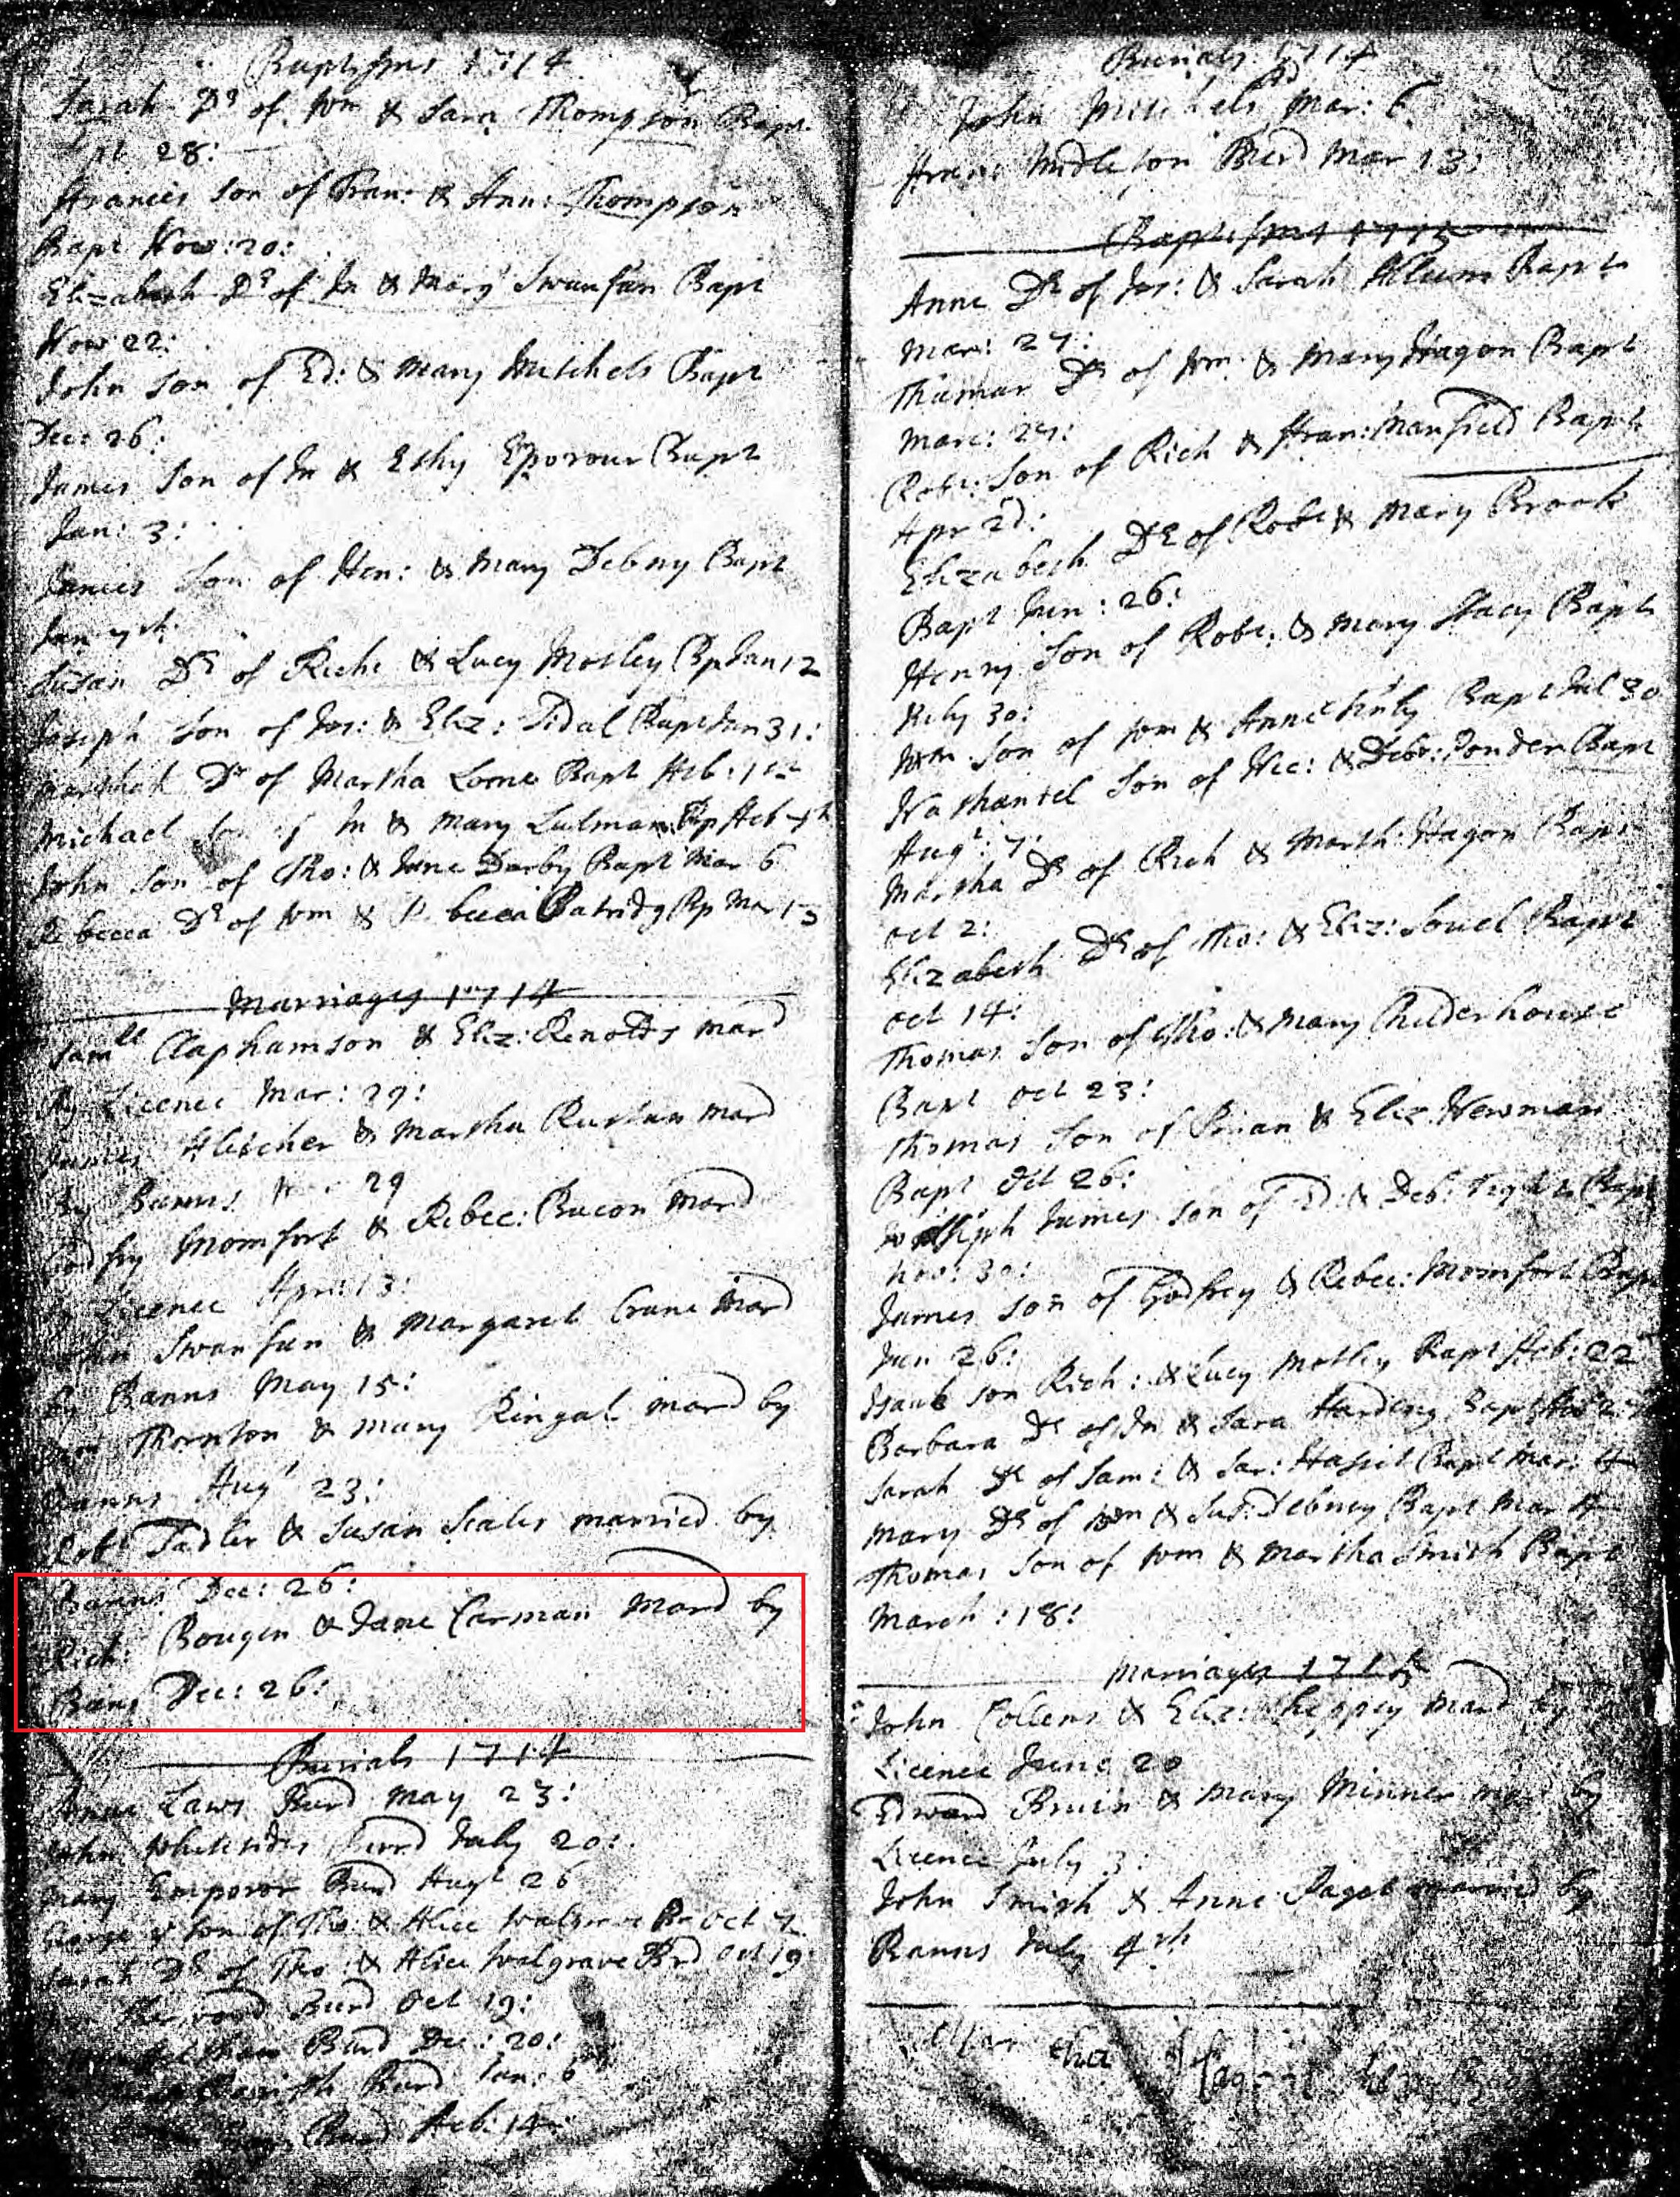 Baptisms 1714
Sarah Dr of Wm & Sara Thompson Bapt
28:
Francis Son of Fran: & Ann: Thompson
Bapt Nov: 20:
Elizabeth Dr of Jn & Mary Swanfan Bapt
Nov 22:
John Son of Ed: & Mary Mitchels Bapt
Dec: 26:
James Son of Jn & Eshy Eporour Bapt
Jan: 3:
James Son of Hen: & Mary Debny Bapt
Jan 7th:
Susan Dr of Rich: & Lucy Motley Bp Jan 12
Joseph Son of Jos: & Eliz: Tidal Bapt Jan 31:
Dr of Martha Lorne Bapt Feb: 1st
Michael Son of Jn & Mary Bp Feb 7th
John Son of Tho: & Jane Darby Bapt Mar 6
Rebecca Dr of Wm & Batridg Bp Mar 13
Marriages 1714
Samll Claphamson & Eliz: Renolds mard
By Licence Mar: 29:
James Fletcher & Martha mard
By Banns 29
Godfry Momfort & Rebec: Bacon mard
Licence Apr: 13:
John Swanfan & Margaret Crane mard
by Banns May 15:
Thornton & Mary Ringal mard by
Banns Augt 23:
Robt Tadler & Susan Scales married by
Banns Dec: 26:
Rich: Bougin & Jane Carman mard by
Bans Dec: 26:
Burials 1714
Laws Burd May 23:
John Whitesides Burd July 20:
Mary Emperor Burd Augt 26
George Son of Tho: & Alice Walgrave Br Oct 7
Sarah Dr of Tho: & Alice Walgrave Brd Oct 19
Burd Oct 19:
Burd Dec: 20:
Burd Jan: 6
Burd Feb: 14:
Burials 1714
John Mitchels Mar: 6
Fran: Midleton Burd Mar 13:
Baptisms 1715
Anne Dr of Jos: & Sarah Bapt
Mar: 27:
Thamar Dr of Wm & Mary Hagon Bapt
Marc: 27:
Robt: Son of Rich & Fran: Manfield Bapt
Apr 2d:
Elizabeth Dr of Robt & Mary Brook
Bapt Jun: 26:
Henry Son of Robt: & Mary Stacy Bapt
July 30:
Wm Son of Wm & Anne Bapt Jul 30
Nathaniel Son of Nic: & Deb: Ponder Bapt
Augt: 7
Martha Dr of Rich & Marth: Hagon Bapt
Oct 2:
Elizabeth Dr of Tho: & Eliz: Souel Bapt
Oct 14:
Thomas Son of Tho: & Mary Childerhouse
Bapt Oct 23:
Thomas Son of Brian & Eliz Newman
Bapt Oct 26:
James Son of Ed: & Deb: Bapt
Nov: 30:
James Son of Godfrey & Rebec: Momfort Bapt
Jan 26:
Isaac Son Rich: & Lucy Motley Bapt Feb: 22
Barbara Dr of Jn & Sara Harding Bapt
Sarah Dr of Sam: & Sar: Bapt Mar: 4
Mary Dr of Wm & Sus: Debney Bapt Mar 4
Thomas Son of Wm & Martha Smith Bapt
March: 18:
Marriages 1715
John Collens & Eliz: Sheppey mard by
Licence June 20
Edward Bruin & Mary Minner mard by
Licence July 3:
John Smith & Anne Paget married by
Banns July 4th